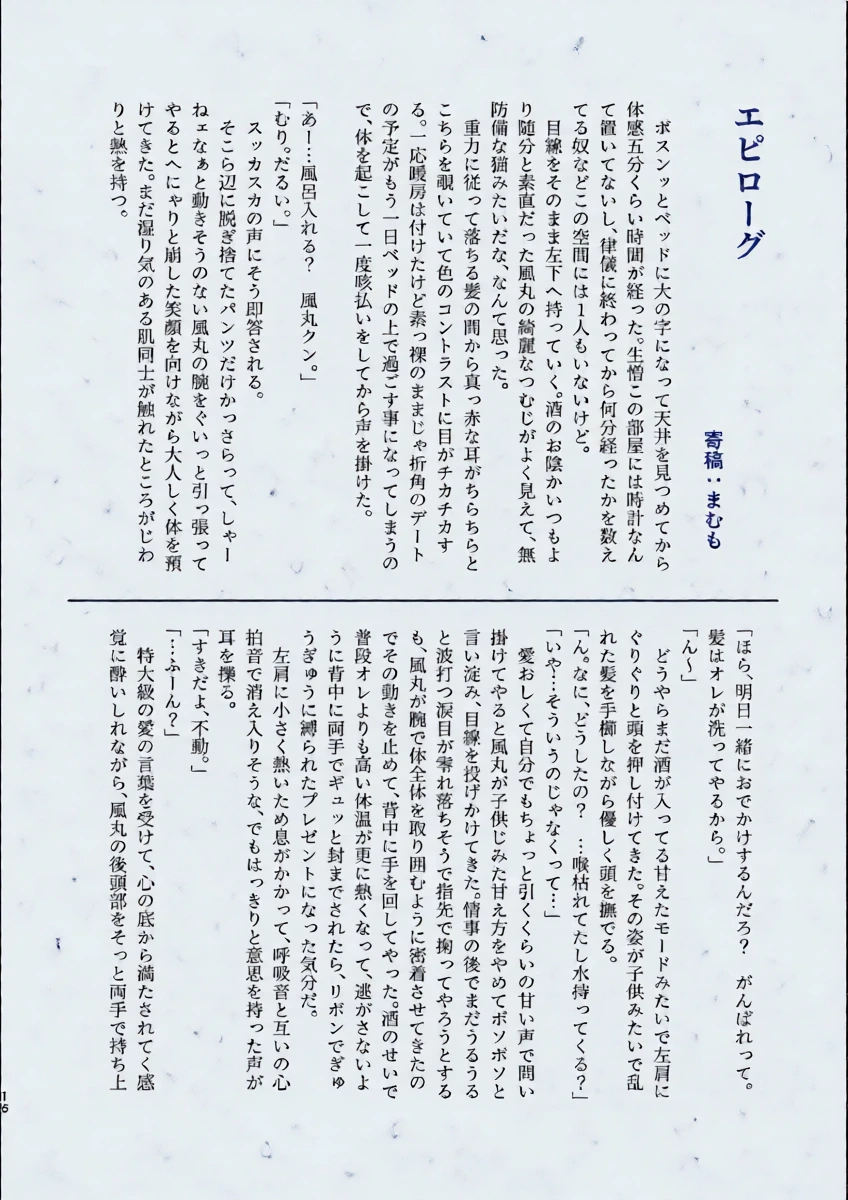 エピローグ
寄稿：まむも
ボスンッとベッドに大の字になって天井を見つめてから
体感五分くらい時間が経った。生憎この部屋には時計なん
て置いてないし、律儀に終わってから何分経ったかを数え
てる奴などこの空間には1人もいないけど。
目線をそのまま左下へ持っていく。酒のお陰かいつもよ
り随分と素直だった風丸の綺麗なつむじがよく見えて、無
防備な猫みたいだな、なんて思った。
重力に従って落ちる髪の間から真っ赤な耳がちらちらと
こちらを覗いていて色のコントラストに目がチカチカす
る。一応暖房は付けたけど素っ裸のままじゃ折角のデート
の予定がもう一日ベッドの上で過ごす事になってしまうの
で、体を起こして一度咳払いをしてから声を掛けた。
「あー…風呂入れる？　風丸クン。」
「むり。だるい。」
スッカスカの声にそう即答される。
そこら辺に脱ぎ捨てたパンツだけかっさらって、しゃー
ねェなぁと動きそうのない風丸の腕をぐいっと引っ張って
やるとへにゃりと崩した笑顔を向けながら大人しく体を預
けてきた。まだ湿り気のある肌同士が触れたところがじわ
りと熱を持つ。
「ほら、明日一緒におでかけするんだろ？　がんばれって。
髪はオレが洗ってやるから。」
「ん〜」
どうやらまだ酒が入ってる甘えたモードみたいで左肩に
ぐりぐりと頭を押し付けてきた。その姿が子供みたいで乱
れた髪を手櫛しながら優しく頭を撫でる。
「ん。なに、どうしたの？　…喉枯れてたし水持ってくる？」
「いや…そういうのじゃなくって…」
愛おしくて自分でもちょっと引くくらいの甘い声で問い
掛けてやると風丸が子供じみた甘え方をやめてボソボソと
言い淀み、目線を投げかけてきた。情事の後でまだうるうる
と波打つ涙目が零れ落ちそうで指先で掬ってやろうとする
も、風丸が腕で体全体を取り囲むように密着させてきたの
でその動きを止めて、背中に手を回してやった。酒のせいで
普段オレよりも高い体温が更に熱くなって、逃がさないよ
うに背中に両手でギュッと封までされたら、リボンでぎゅ
うぎゅうに縛られたプレゼントになった気分だ。
左肩に小さく熱いため息がかかって、呼吸音と互いの心
拍音で消え入りそうな、でもはっきりと意思を持った声が
耳を擽る。
「すきだよ、不動。」
「…ふーん？」
特大級の愛の言葉を受けて、心の底から満たされてく感
覚に酔いしれながら、風丸の後頭部をそっと両手で持ち上
16